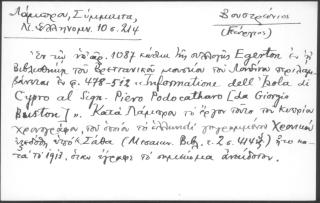 Λάμπρου, Σύμμικτα,
Ν. Ἑλληνομν. 10 σ. 214
Βουστρώνιος
(Γεώργιος)
Ἐν τῷ ὑπ' ἀρ. 1087 κώδικι τῆς συλλογῆς Egerton ἐν τῇ
Βιβλιοθήκῃ τοῦ Βρεττανικοῦ μουσείου τοῦ Λονδίνου περιλαμ-
βάνεται ἐν φ. 478-512 «Informatione dell' Isola di
Cypro al Sign. Piero Podocatharo [da Giorgio
Bustron]». Κατὰ Λάμπρον τὸ ἔργον τοῦτο τοῦ Κυπρίου
χρονογράφου, τοῦ ὁποίου τὸ ἑλληνιστὶ γεγραμμένον Χρονικὸν
ἐξεδόθη ὑπὸ Κ. Σάθα (Μεσαιων. Βιβ. τ. 2 σ. 414) ἦτο κα-
τὰ τὸ 1913, ὅταν ἔγραφε τὸ σημείωμα ἀνέκδοτον.